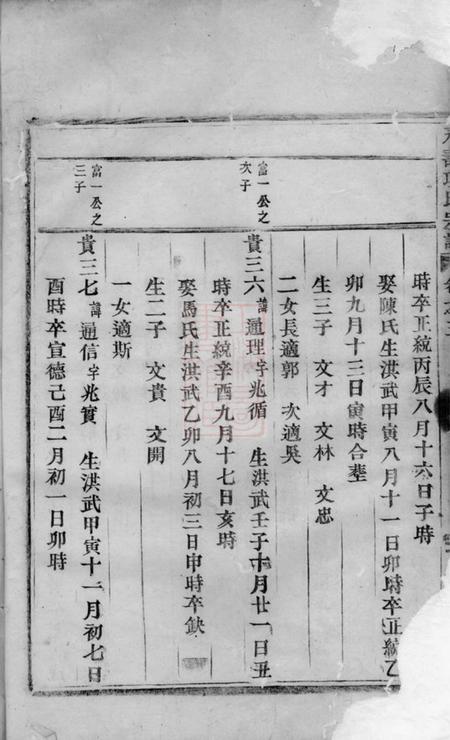 時卒正統丙辰八月十六日子時
娶陳氏生洪武甲寅八月十一日卯時卒正統乙
卯九月十三日寅時合塟
生三子 文才 文林 文忠
二女長適郭 次適吳
富一公之
次子
貴三六諱通理字兆循 生洪武壬子十月廿一日丑
時卒正統辛酉九月十七日亥時
娶馬氏生洪武乙卯八月初三日申時卒缺
生二子 文貴 文開
一女適斯
富一公之
三子
貴三七諱通信字兆實 生洪武甲寅十一月初七日
酉時卒宣德己酉二月初一日卯時